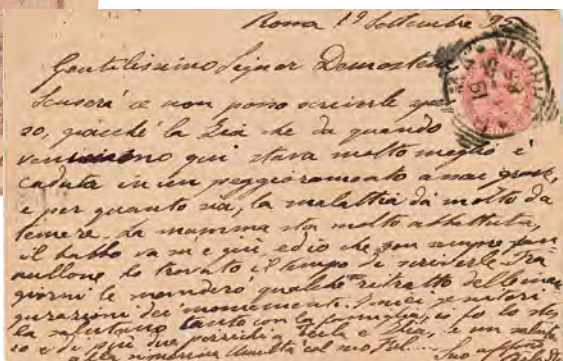 Roma 19 Settembre 95
Gentilissimo Signor Demostene
Scuserà se non posso scriverle spes
so, giacchè la Zia che da quando
venimmo qui stava molto meglio è
caduta in un peggioramento assai grave,
e per quanto sia, la malattia dà molto da
temere. La mamma sta molto abbattuta,
il babbo va su e giù, ed io che son sempre fan
nullone ho trovato il tempo di scriverle. Fra
giorni le manderò qualche ritratto delle inau
gurazioni dei monumenti. I miei genitori
la salutano tanto con la famiglia, io fo lo stes
so e di più due a e un saluto
alla signorina col suo
Suo